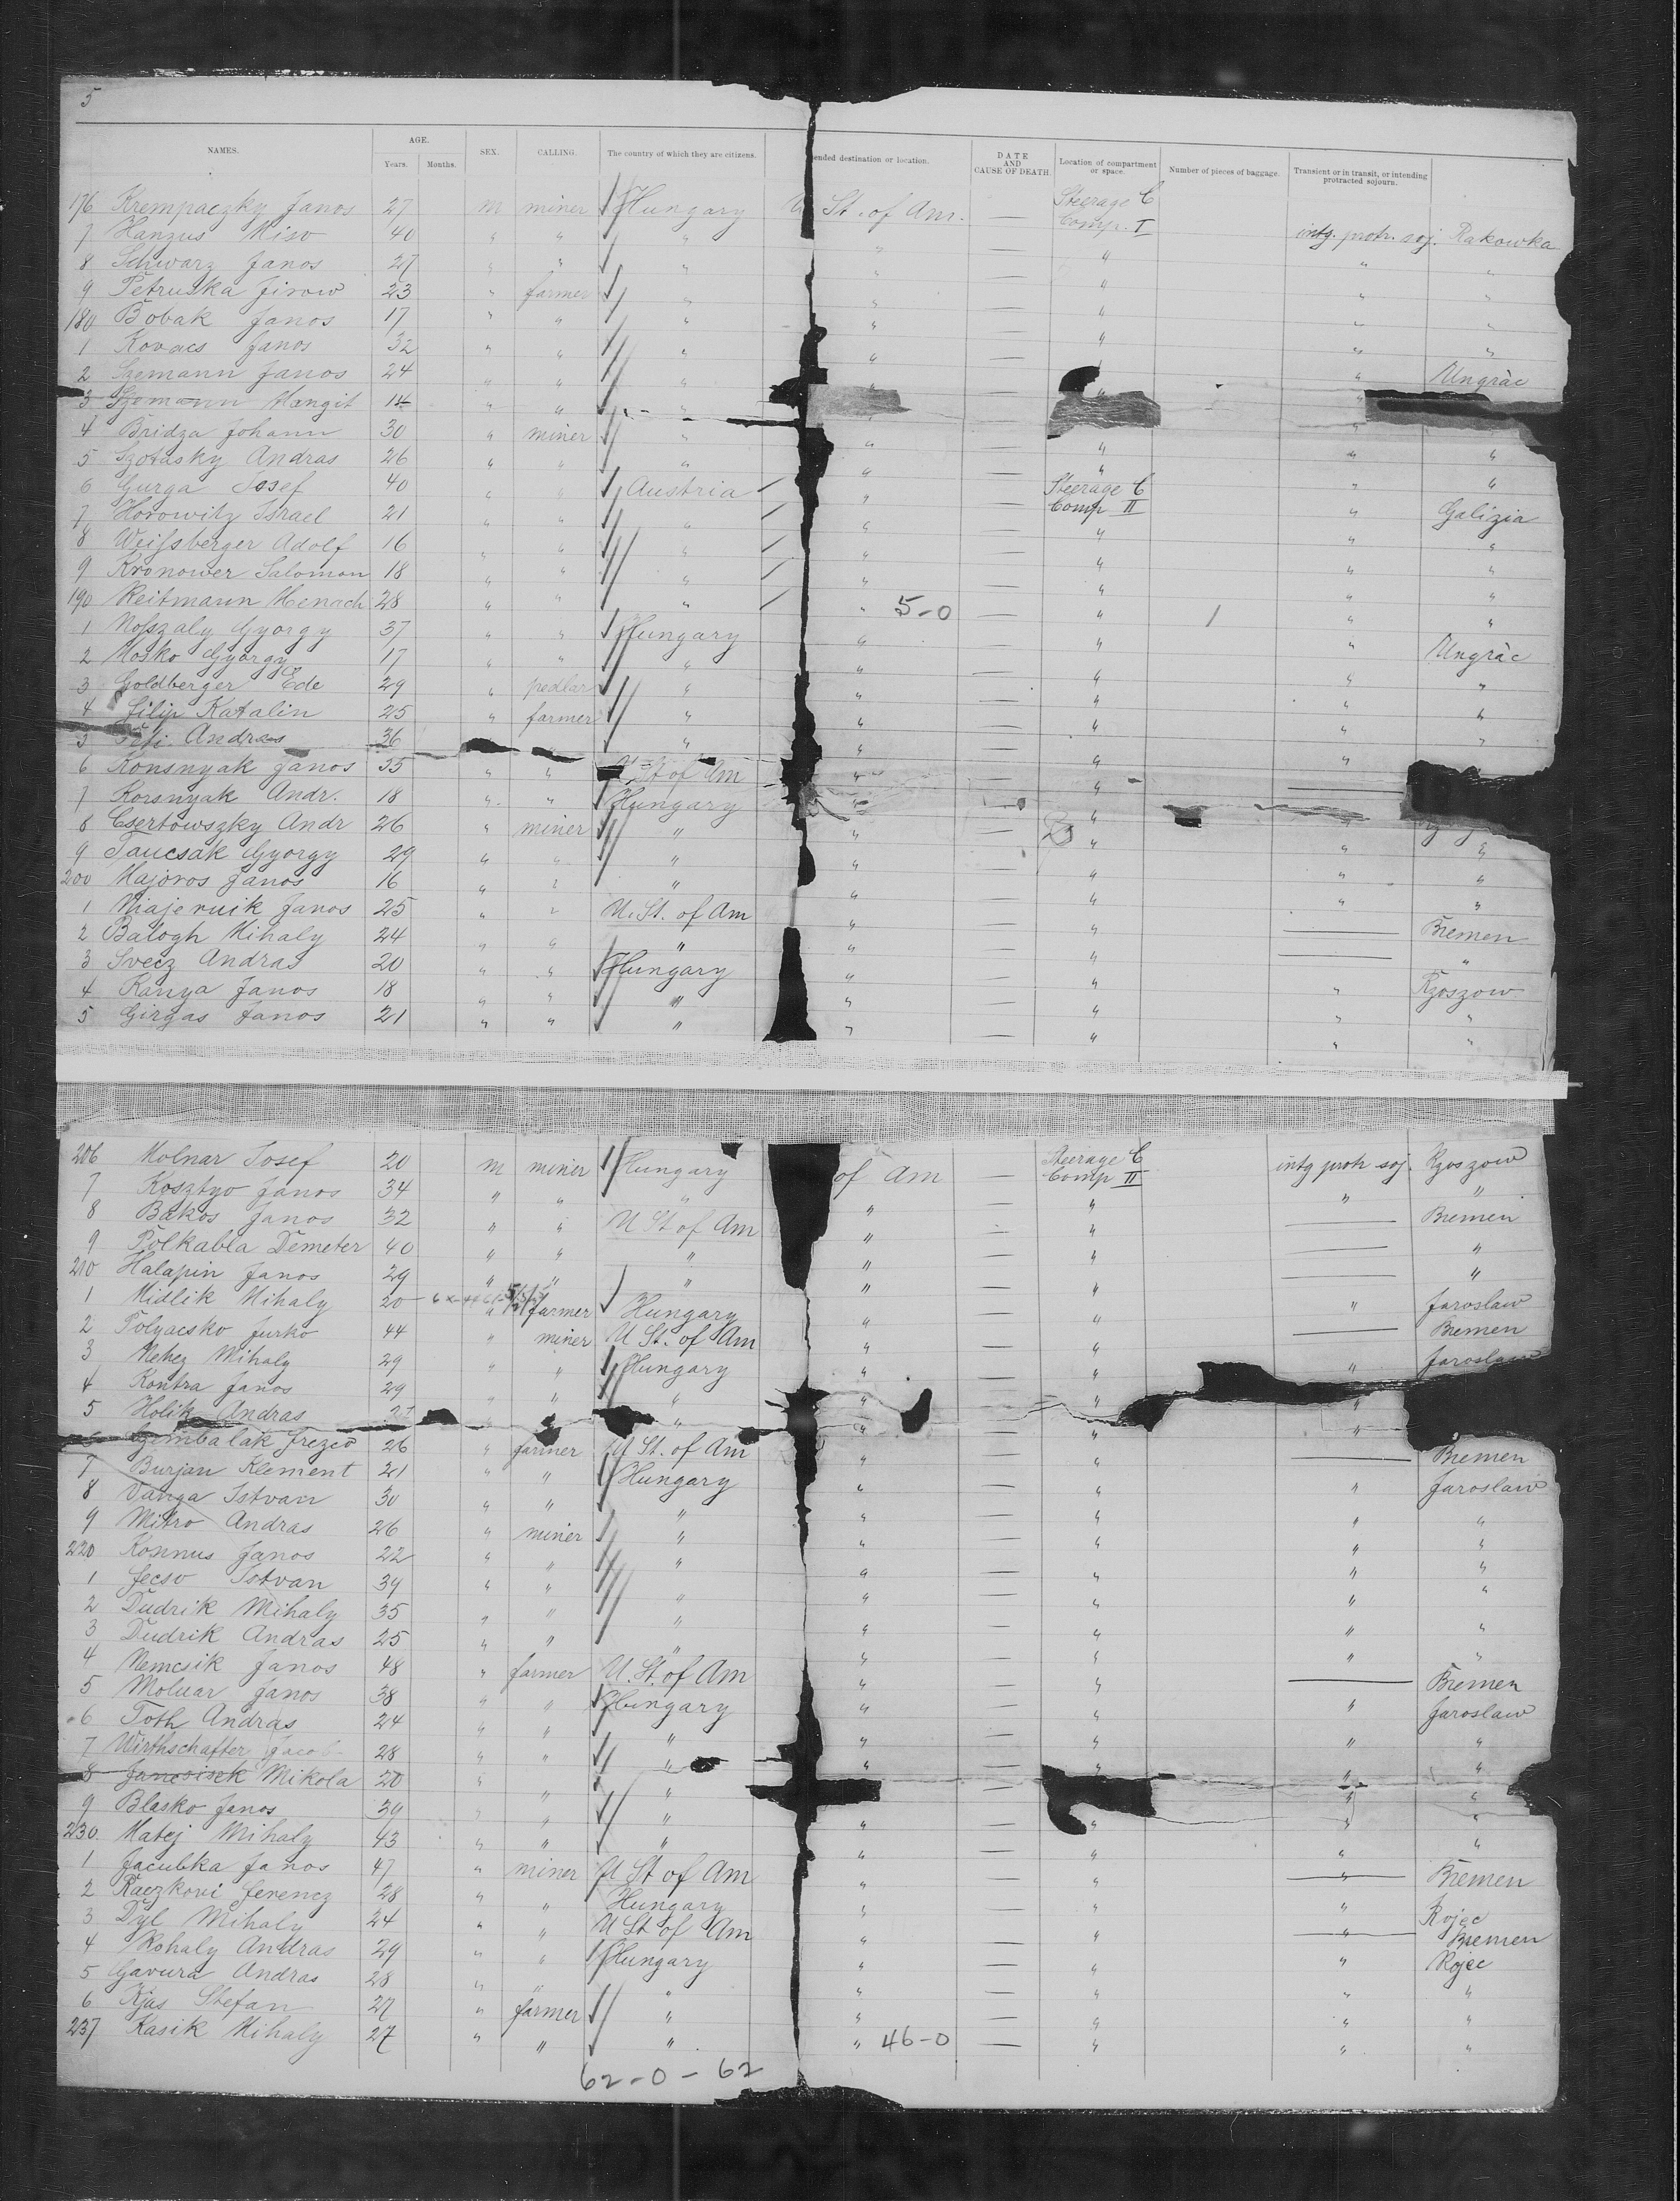 5
NAMES. AGE. Years. Months. SEX. CALLING. The country of which they are citizens. ended destination or location. DATE AND CAUSE OF DEATH. Location of compartment or space. Number of pieces of baggage. Transient or in transit, or intending protracted sojourn.
176 Krempaczky Janos 27 m miner Hungary U St. of Am. — Steerage C Comp. I intg. protr. soj. Rakowka
7 Hanzus Miso 40 " " " " — " " "
8 Schwarz Janos 27 " " " " — " " "
9 Petruska 23 " farmer " " — " " "
180 Bobak Janos 17 " " " " — " " "
1 Kovacs Janos 32 " " " " — " "
2 Szemann Janos 24 " " " " — " " Ungràc
3 14 " " "
4 Bridza Johann 30 " miner " " — " "
5 Andras 26 " " " " — " " "
6 Gurga Josef 40 " " Austria " — Steerage C Comp II " Galizia
7 Horowitz Israel 21 " " " " — " " "
8 Weissberger Adolf 16 " " " " — " " "
9 Kronower Salomon 18 " " " " — " " "
190 Reitmann Henach 28 " " " " 5-0 — " 1 " "
1 Gyorgy 37 " " Hungary " — " " Ungràc
2 Mosko Gyorgy 17 " " " " — " " "
3 Goldberger Ede 29 " pedlar " " — " " "
4 Filip Katalin 25 " farmer " " — " " "
5 Andras 36 " " — " "
6 Konsnyak Janos 35 " " U St of Am " — " —
7 Korsnyak Andr. 18 " " Hungary " — "
8 Csertowszky Andr 26 " miner " " — " "
9 Taucsak Gyorgy 29 " " " " — " " "
200 Majoros Janos 16 " " " " — " " "
1 Janos 25 " " U. St. of Am " — " — Bremen
2 Balogh Mihaly 24 " " " " — " — "
3 Svecz Andras 20 " " Hungary " — " " Rzoszow
4 Kanya Janos 18 " " " " — " " "
5 Girgas Janos 21 " " " " — " " "
206 Molnar Josef 20 m miner Hungary of Am — Steerage C Comp II intg protr soj. Rzoszow
7 Kosztyo Janos 34 " " " " — " " "
8 Bakos Janos 32 " " U St of Am " — " — Bremen
9 Polkabla Demeter 40 " " " " — " — "
210 Halapin Janos 29 " " " " — " — "
1 Midlik Mihaly 20 " farmer Hungary " — " " Jaroslaw
2 Polyacsko Jurko 44 " miner U St. of Am " — " — Bremen
3 Nehez Mihaly 29 " " Hungary " — " " Jaroslaw
4 Kontra Janos 29 " " " " — " "
5 Holik Andras " " " — " "
26 " farmer U St. of Am " — " — Bremen
7 Burjan Klement 21 " " Hungary " — " " Jaroslaw
8 Varga Istvan 30 " " " " — " " "
9 Mitro Andras 26 " miner " " — " " "
220 Konnus Janos 22 " " " " — " " "
1 Fecso Istvan 39 " " " " — " " "
2 Dudrik Mihaly 35 " " " " — " " "
3 Dudrik Andras 25 " " " " — " " "
4 Nemcsik Janos 48 " farmer U. St. of Am " — " — Bremen
5 Molnar Janos 38 " " Hungary " — " " Jaroslaw
6 Toth Andras 24 " " " " — " " "
7 Wirthschafter Jacob 28 " " " " — " " "
8 Jancsisek Mikola 20 " " " — " "
9 Blasko Janos 39 " " " " — " " "
230. Matej Mihaly 43 " " " " — " " "
1 Jacubka Janos 47 " miner U St of Am " — " — Bremen
2 Ferencz 28 " " Hungary " — " " Rojec
3 Dyl Mihaly 24 " " U St of Am " — " — Bremen
4 Rohaly Andras 29 " " Hungary " — " " Rojec
5 Gavura Andras 28 " " " " — " " "
6 Kjas Stefan 27 " farmer " " — " " "
237 Kasik Mihaly 27 " " " " 46-0 — " " "
62-0-62